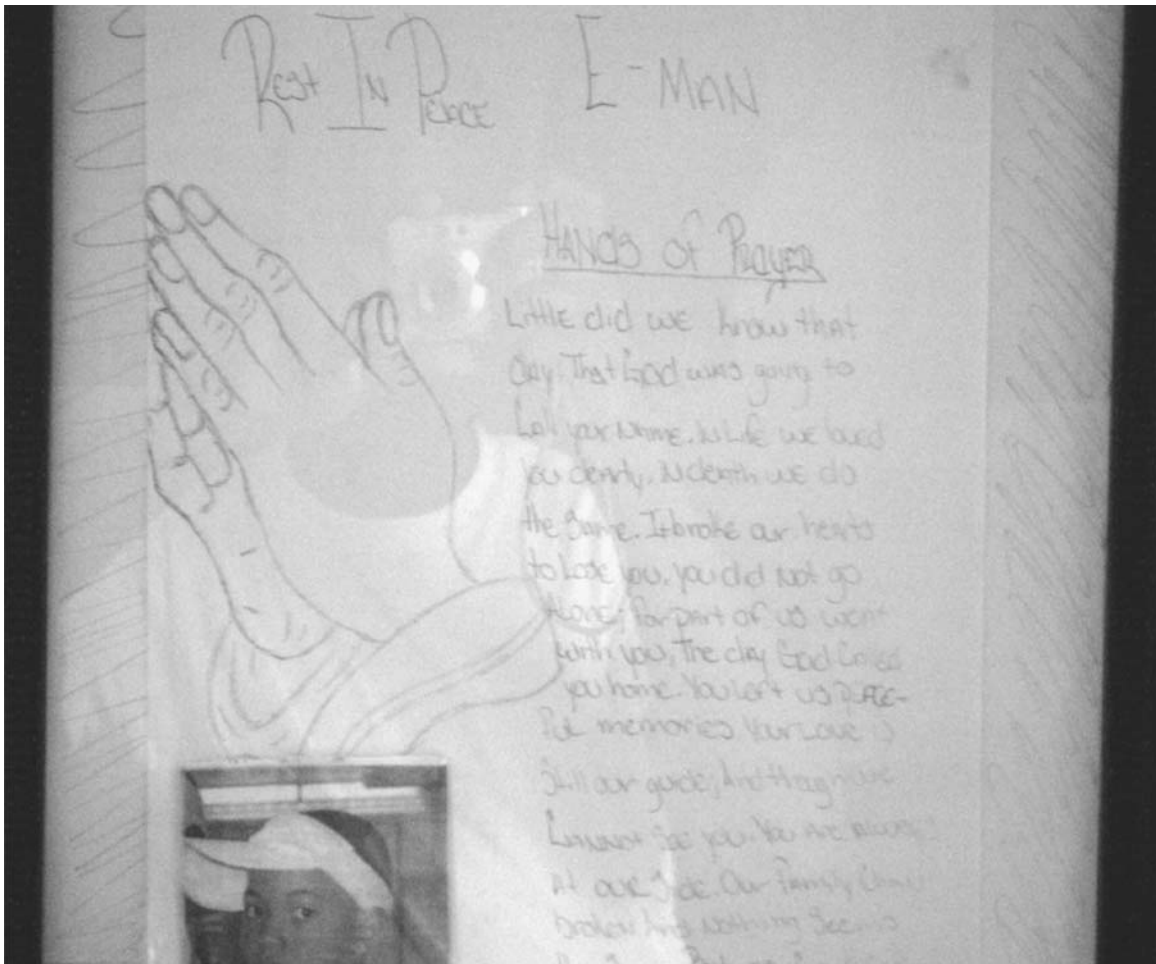 Rest In Peace E-Man
Hands of Prayer
Little did we know that
day. That God was going to
Call your Name. In Life we loved
You dearly, IN death we do
the Same. It broke our hearts
to Lose you. you did Not go
Alone; For part of us went
with you, The day God Called
you home. You Left us PEACE-
Ful memories Your Love is
Still our guide; And though we
Cannot See you. You Are Always
At our Side. Our Family Chain
broken And Nothing Seems